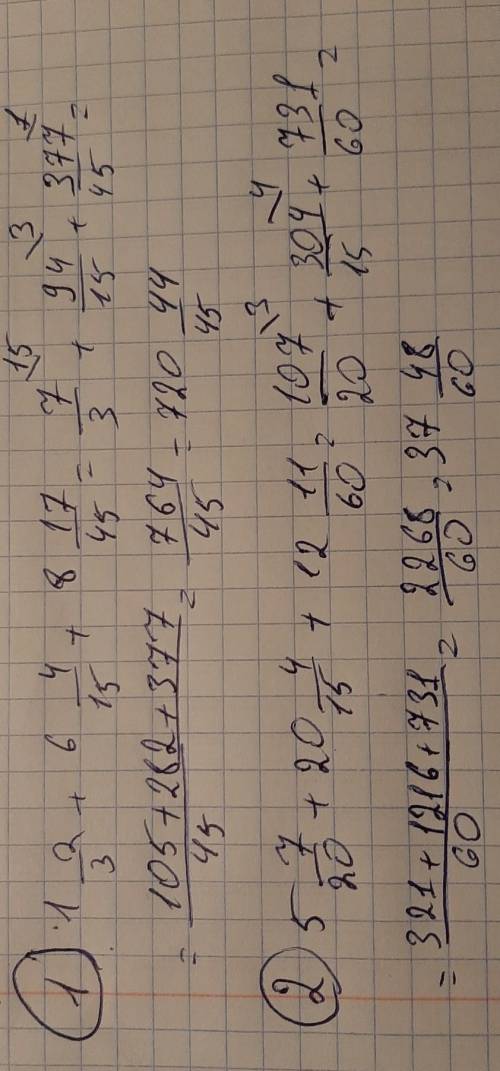 1 1 2/3 + 6 4/15 + 8 17/45 = 7/3 \15 + 94/15 \3 + 377/45 \1 =
= (105+282+377)/45 = 764/45 = 720 44/45
2 5 7/20 + 20 4/15 + 12 11/60 = 107/20 \3 + 304/15 \4 + 731/60 =
= (321+1216+731)/60 = 2268/60 = 37 48/60